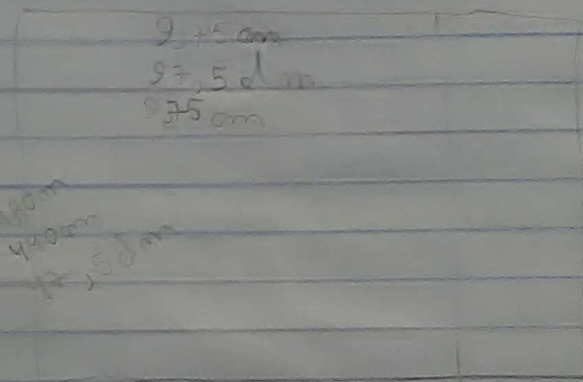 9,75 cm
97,5 dm
975 cm
440 cm
,5 dm